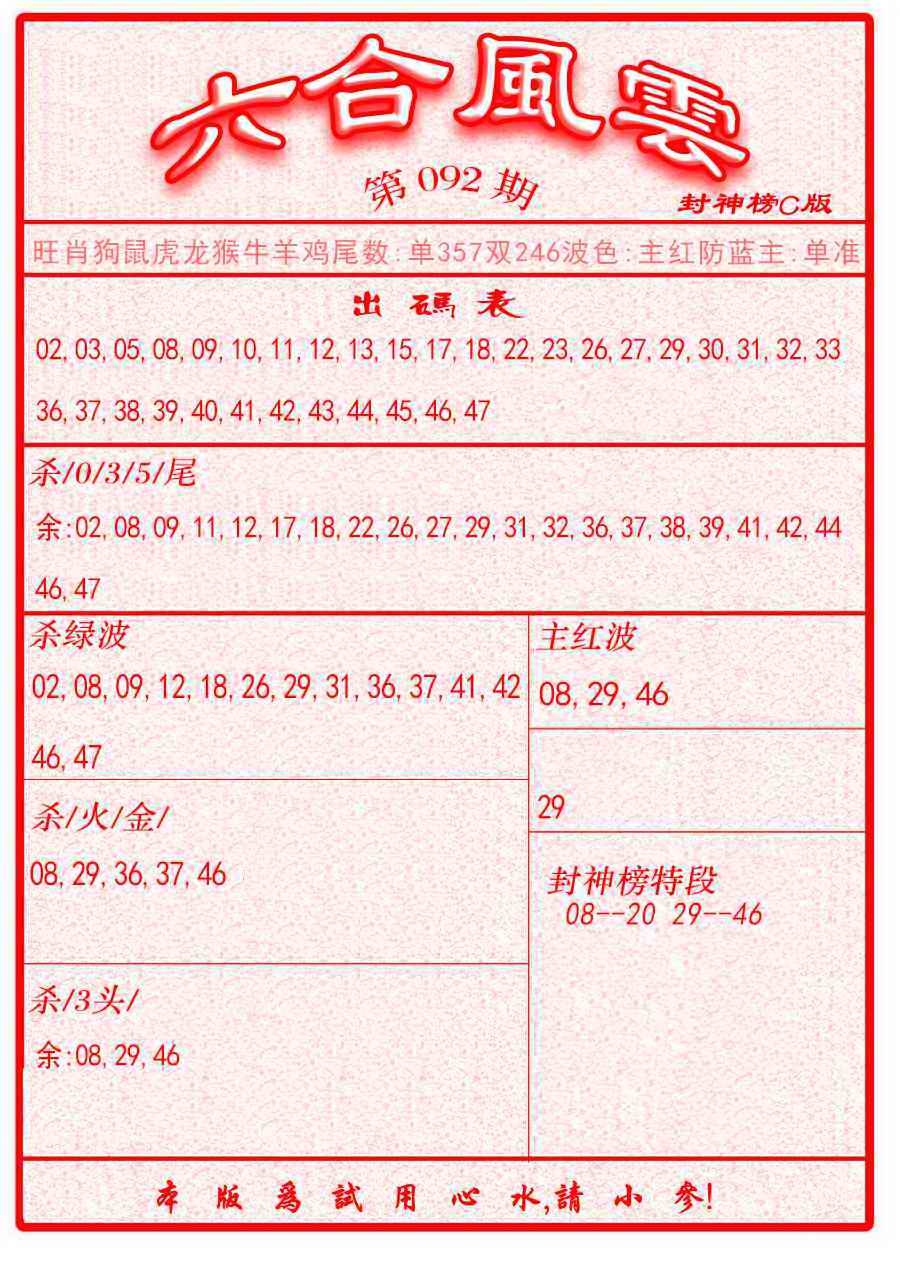 六合風雲
第092期
封神榜C版
旺肖狗鼠虎龙猴牛羊鸡尾数:单357双246波色:主红防蓝主:单准
出碼表
02,03,05,08,09,10,11,12,13,15,17,18,22,23,26,27,29,30,31,32,33
36,37,38,39,40,41,42,43,44,45,46,47
杀/0/3/5/尾
余:02,08,09,11,12,17,18,22,26,27,29,31,32,36,37,38,39,41,42,44
46,47
杀绿波
02,08,09,12,18,26,29,31,36,37,41,42
46,47
主红波
08,29,46
29
杀/火/金/
08,29,36,37,46
封神榜特段
08--20 29--46
杀/3头/
余:08,29,46
本版爲試用心水,請小參!